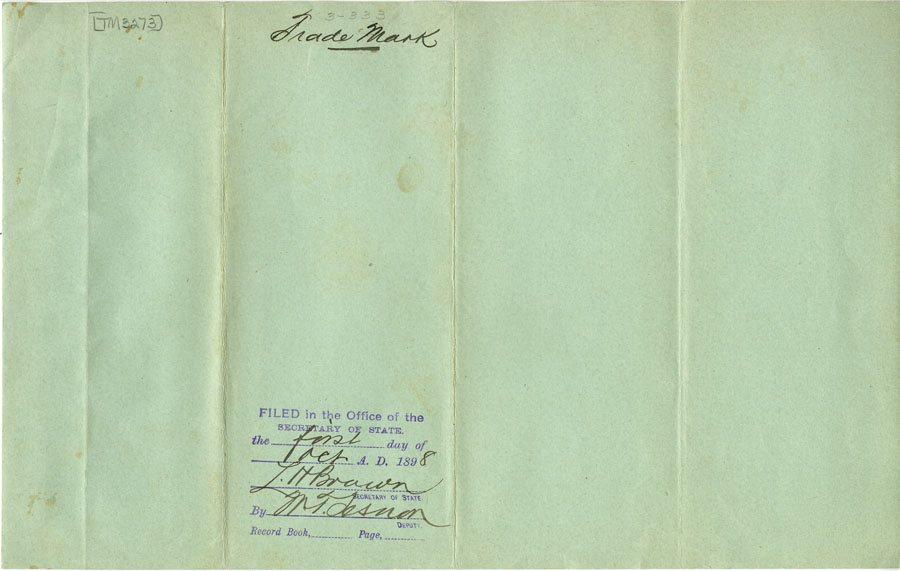 [TM3273]
3-333
Trade Mark
FILED in the Office of the
SECRETARY OF STATE.
the first day of
Oct A. D. 1898
L. H. Brown
SECRETARY OF STATE.
By
DEPUTY.
Record Book, Page,